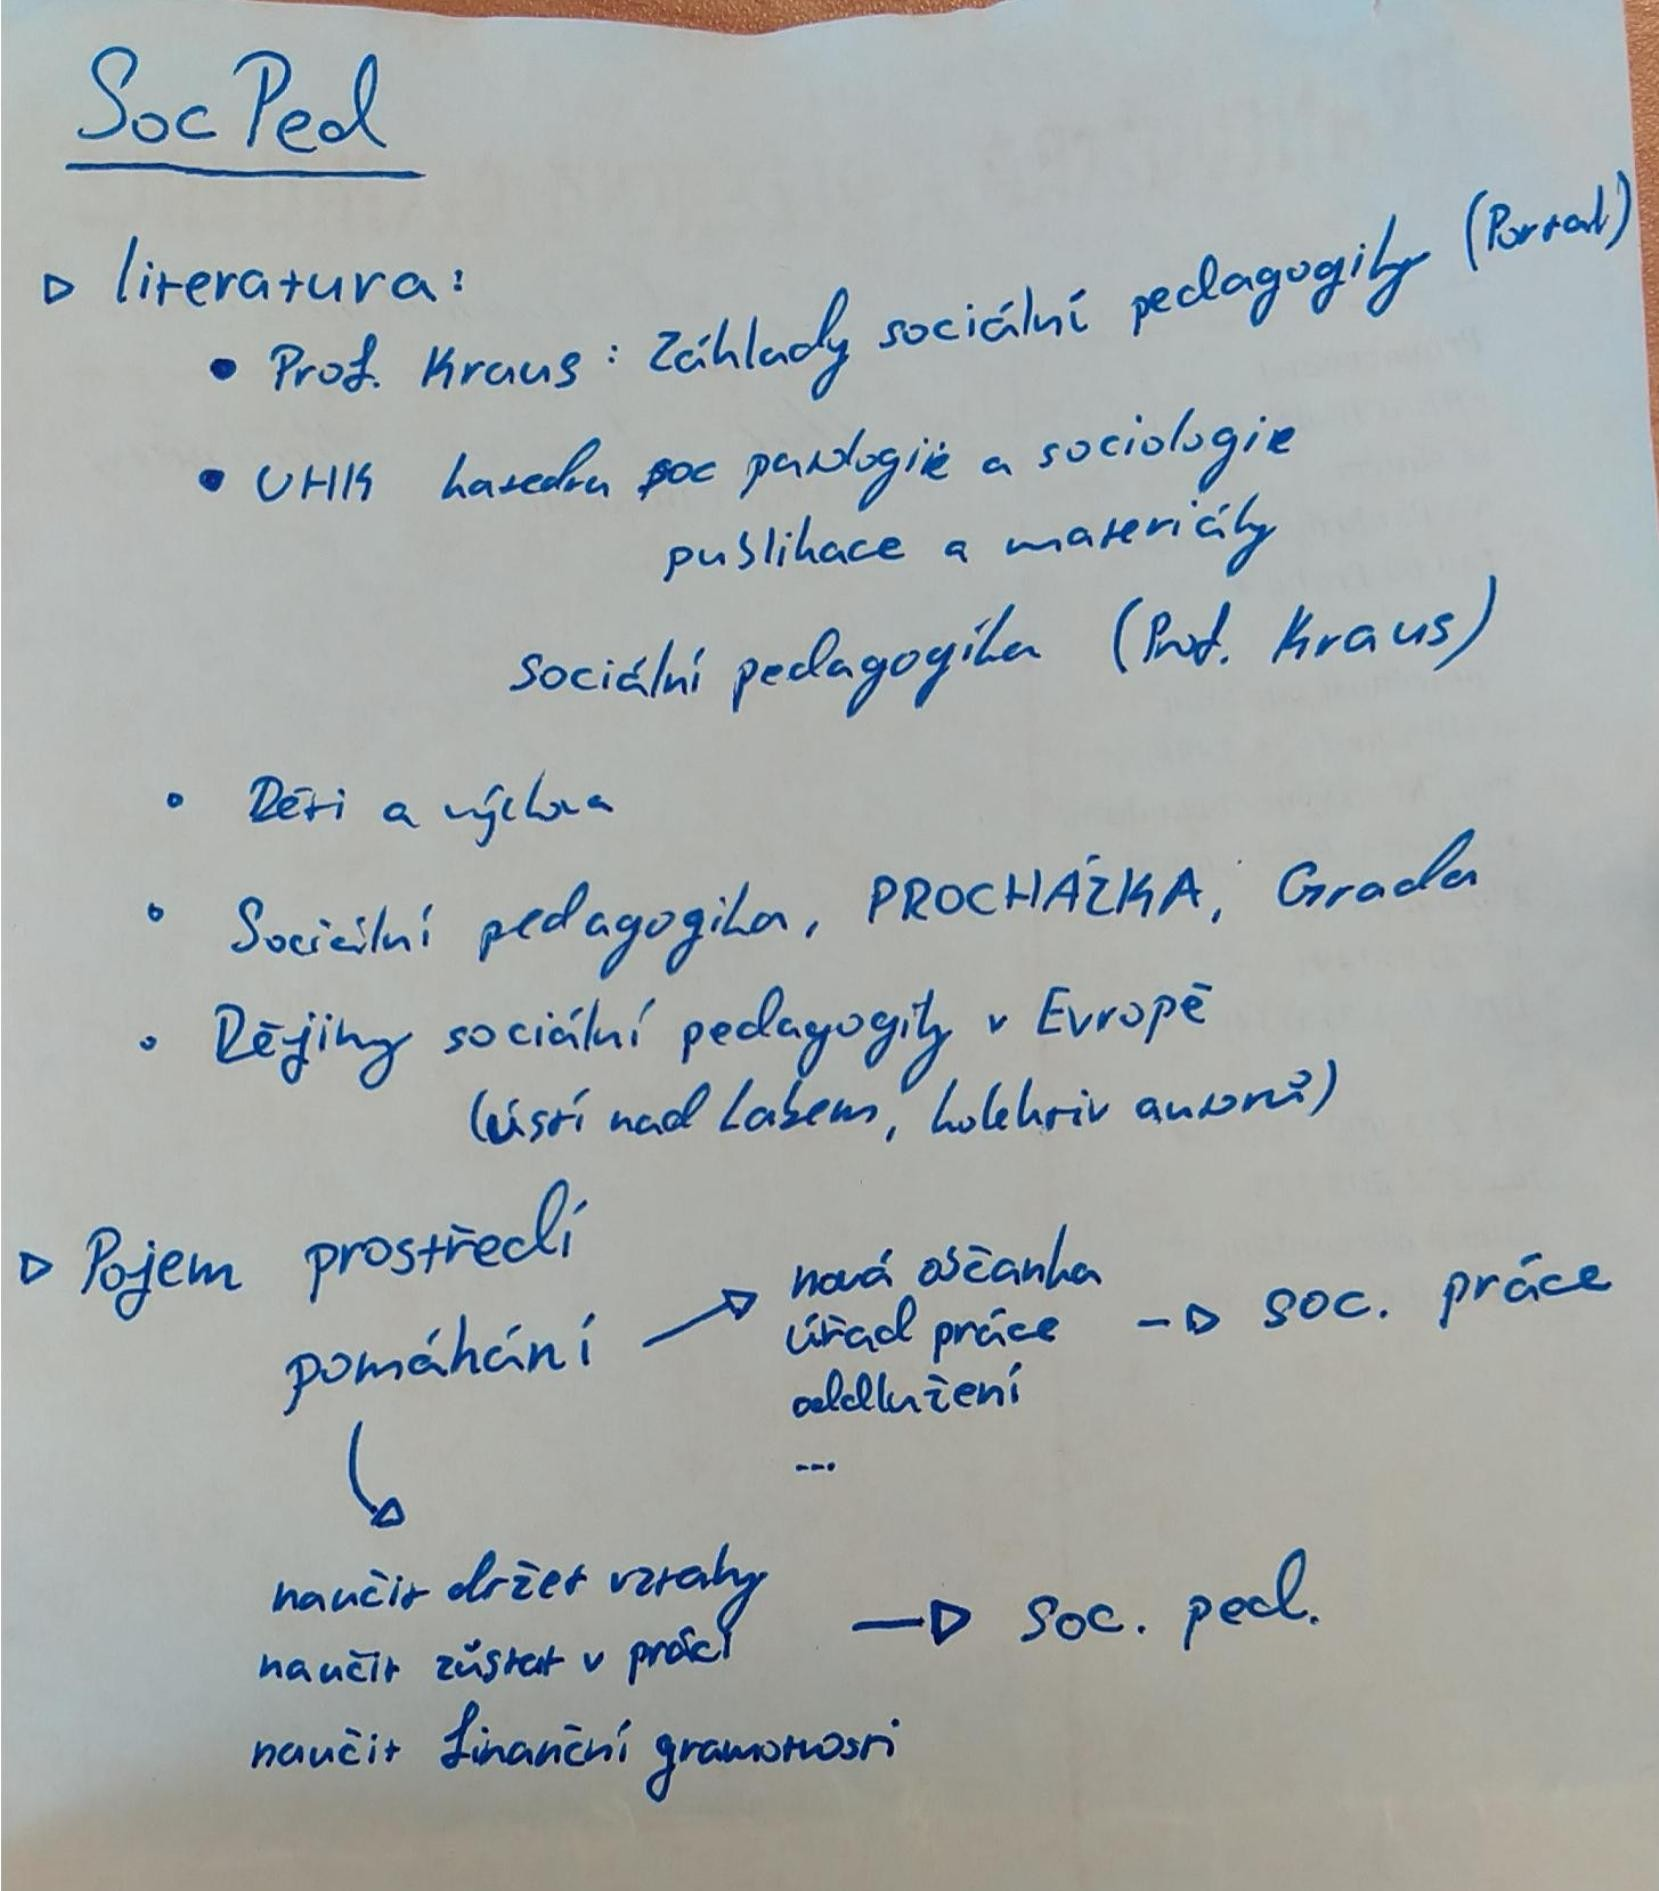 Soc Ped
▷ literatura:
• Prof. Kraus: Základy sociální pedagogiky (Portal)
• UHK katedra soc patologie a sociologie
publikace a materiály
sociální pedagogika (Prof. Kraus)
• Děti a výchova
• Sociální pedagogika, PROCHÁZKA, Grada
• Dějiny sociální pedagogiky v Evropě
(ústí nad Labem, kolektiv autorů)
▷ Pojem prostředí
pomáhání → nová občanka
úřad práce → soc. práce
oddlužení
...
naučit držet vztahy
naučit zůstat v práci → soc. ped.
naučit finanční gramotnosti